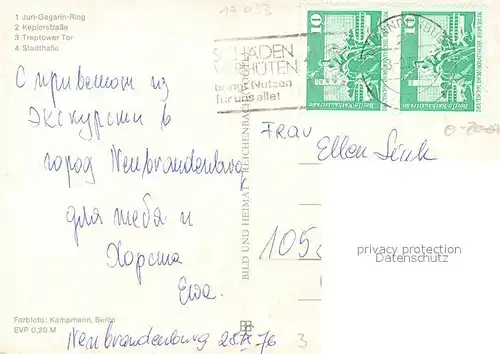 17 033
1 Juri-Gagarin-Ring
2 Keplerstraße
3 Treptower Tor
4 Stadthalle
SCHÄDEN
VERHÜTEN
bringt Nutzen
für uns alle!
10
10
DEUTSCHE DEMOKRATISCHE REPUBLIK
DEUTSCHE DEMOKRATISCHE REPUBLIK
С приветом из
экскурсии в
город Neubrandenburg
для тебя и
Хорста
Ewa.
Neubrandenburg 28.IX 76
Farbfoto: Kampmann, Berlin
EVP 0,20 M
BILD UND HEIMAT REICHENBACH
Frau
Ellen
105
privacy protection
Datenschutz
3